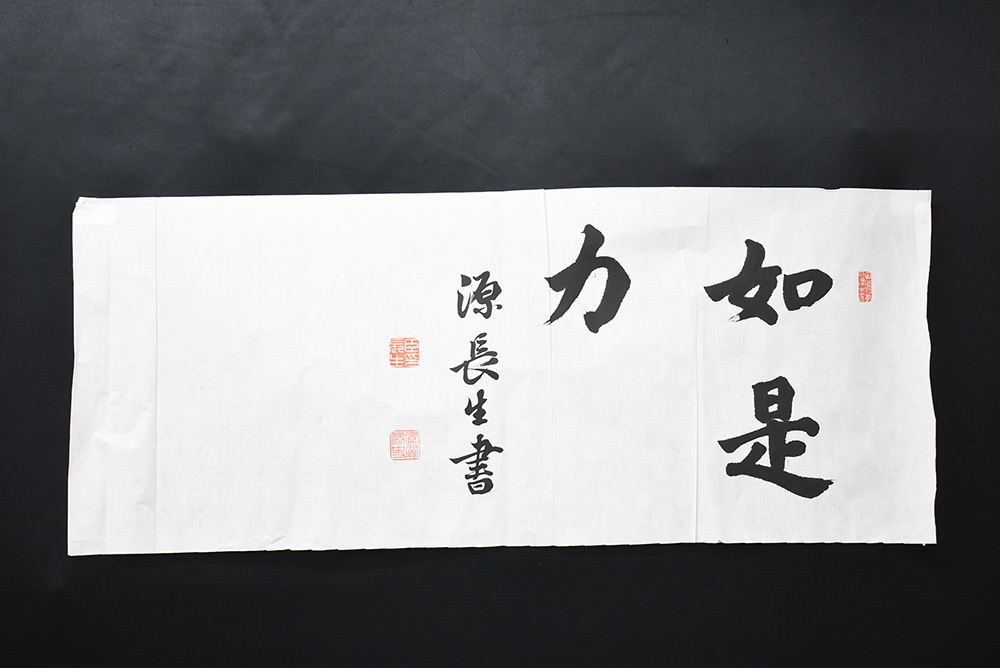 如是
力
源長生書